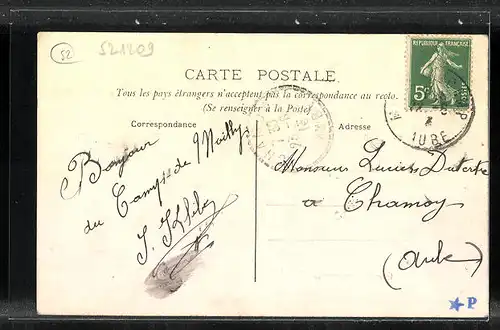 52
521209
RÉPUBLIQUE FRANÇAISE
5c
CARTE POSTALE
Tous les pays étrangers n'acceptent pas la correspondance au recto.
(Se renseigner à la Poste)
Correspondance
Adresse
AUBE
Bonjour
du Camp de Mailly
Monsieur Lucien
à Chamoy
(Aube)
P